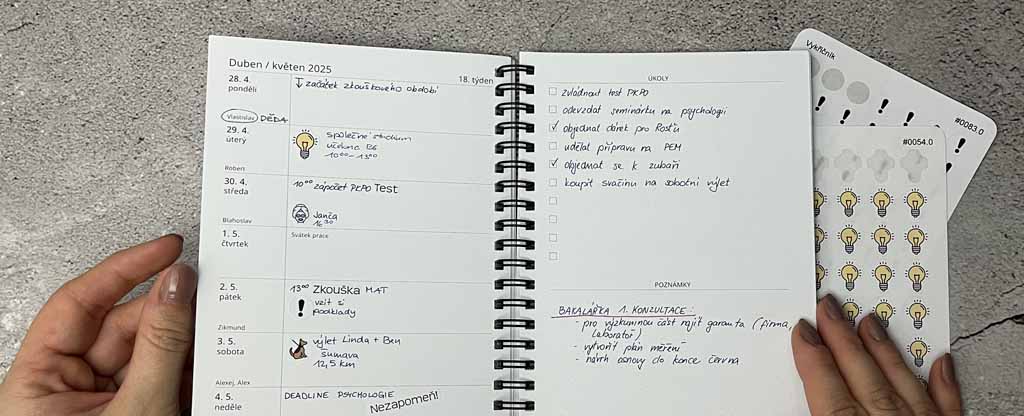 Duben / květen 2025
18. týden
28. 4.
pondělí
začátek zkouškového období
Vlastislav DĚDA
29. 4.
úterý
společné studium
učebna E6
10⁰⁰ - 13⁰⁰
Robert
30. 4.
středa
10⁰⁰ zápočet PKPO Test
Janča
16³⁰
Blahoslav
1. 5.
čtvrtek
Svátek práce
2. 5.
pátek
13⁰⁰ Zkouška MAT
vzít si
podklady
Zikmund
3. 5.
sobota
výlet Linda + Ben
šumava
12,5 km
Alexej, Alex
4. 5.
neděle
DEADLINE PSYCHOLOGIE
Nezapomeň!
ÚKOLY
zvládnout test PKPO
odevzdat seminárku na psychologii
objednat dárek pro Rosťu
udělat přípravu na PEM
objednat se k zubaři
koupit svačinu na sobotní výlet
POZNÁMKY
BAKALÁŘKA 1. KONZULTACE:
- pro výzkumnou část najít garanta (firma,
laboratoř)
- vytvořit plán měření
- návrh osnovy do konce června
Vykřičník
#0083.0
#0054.0